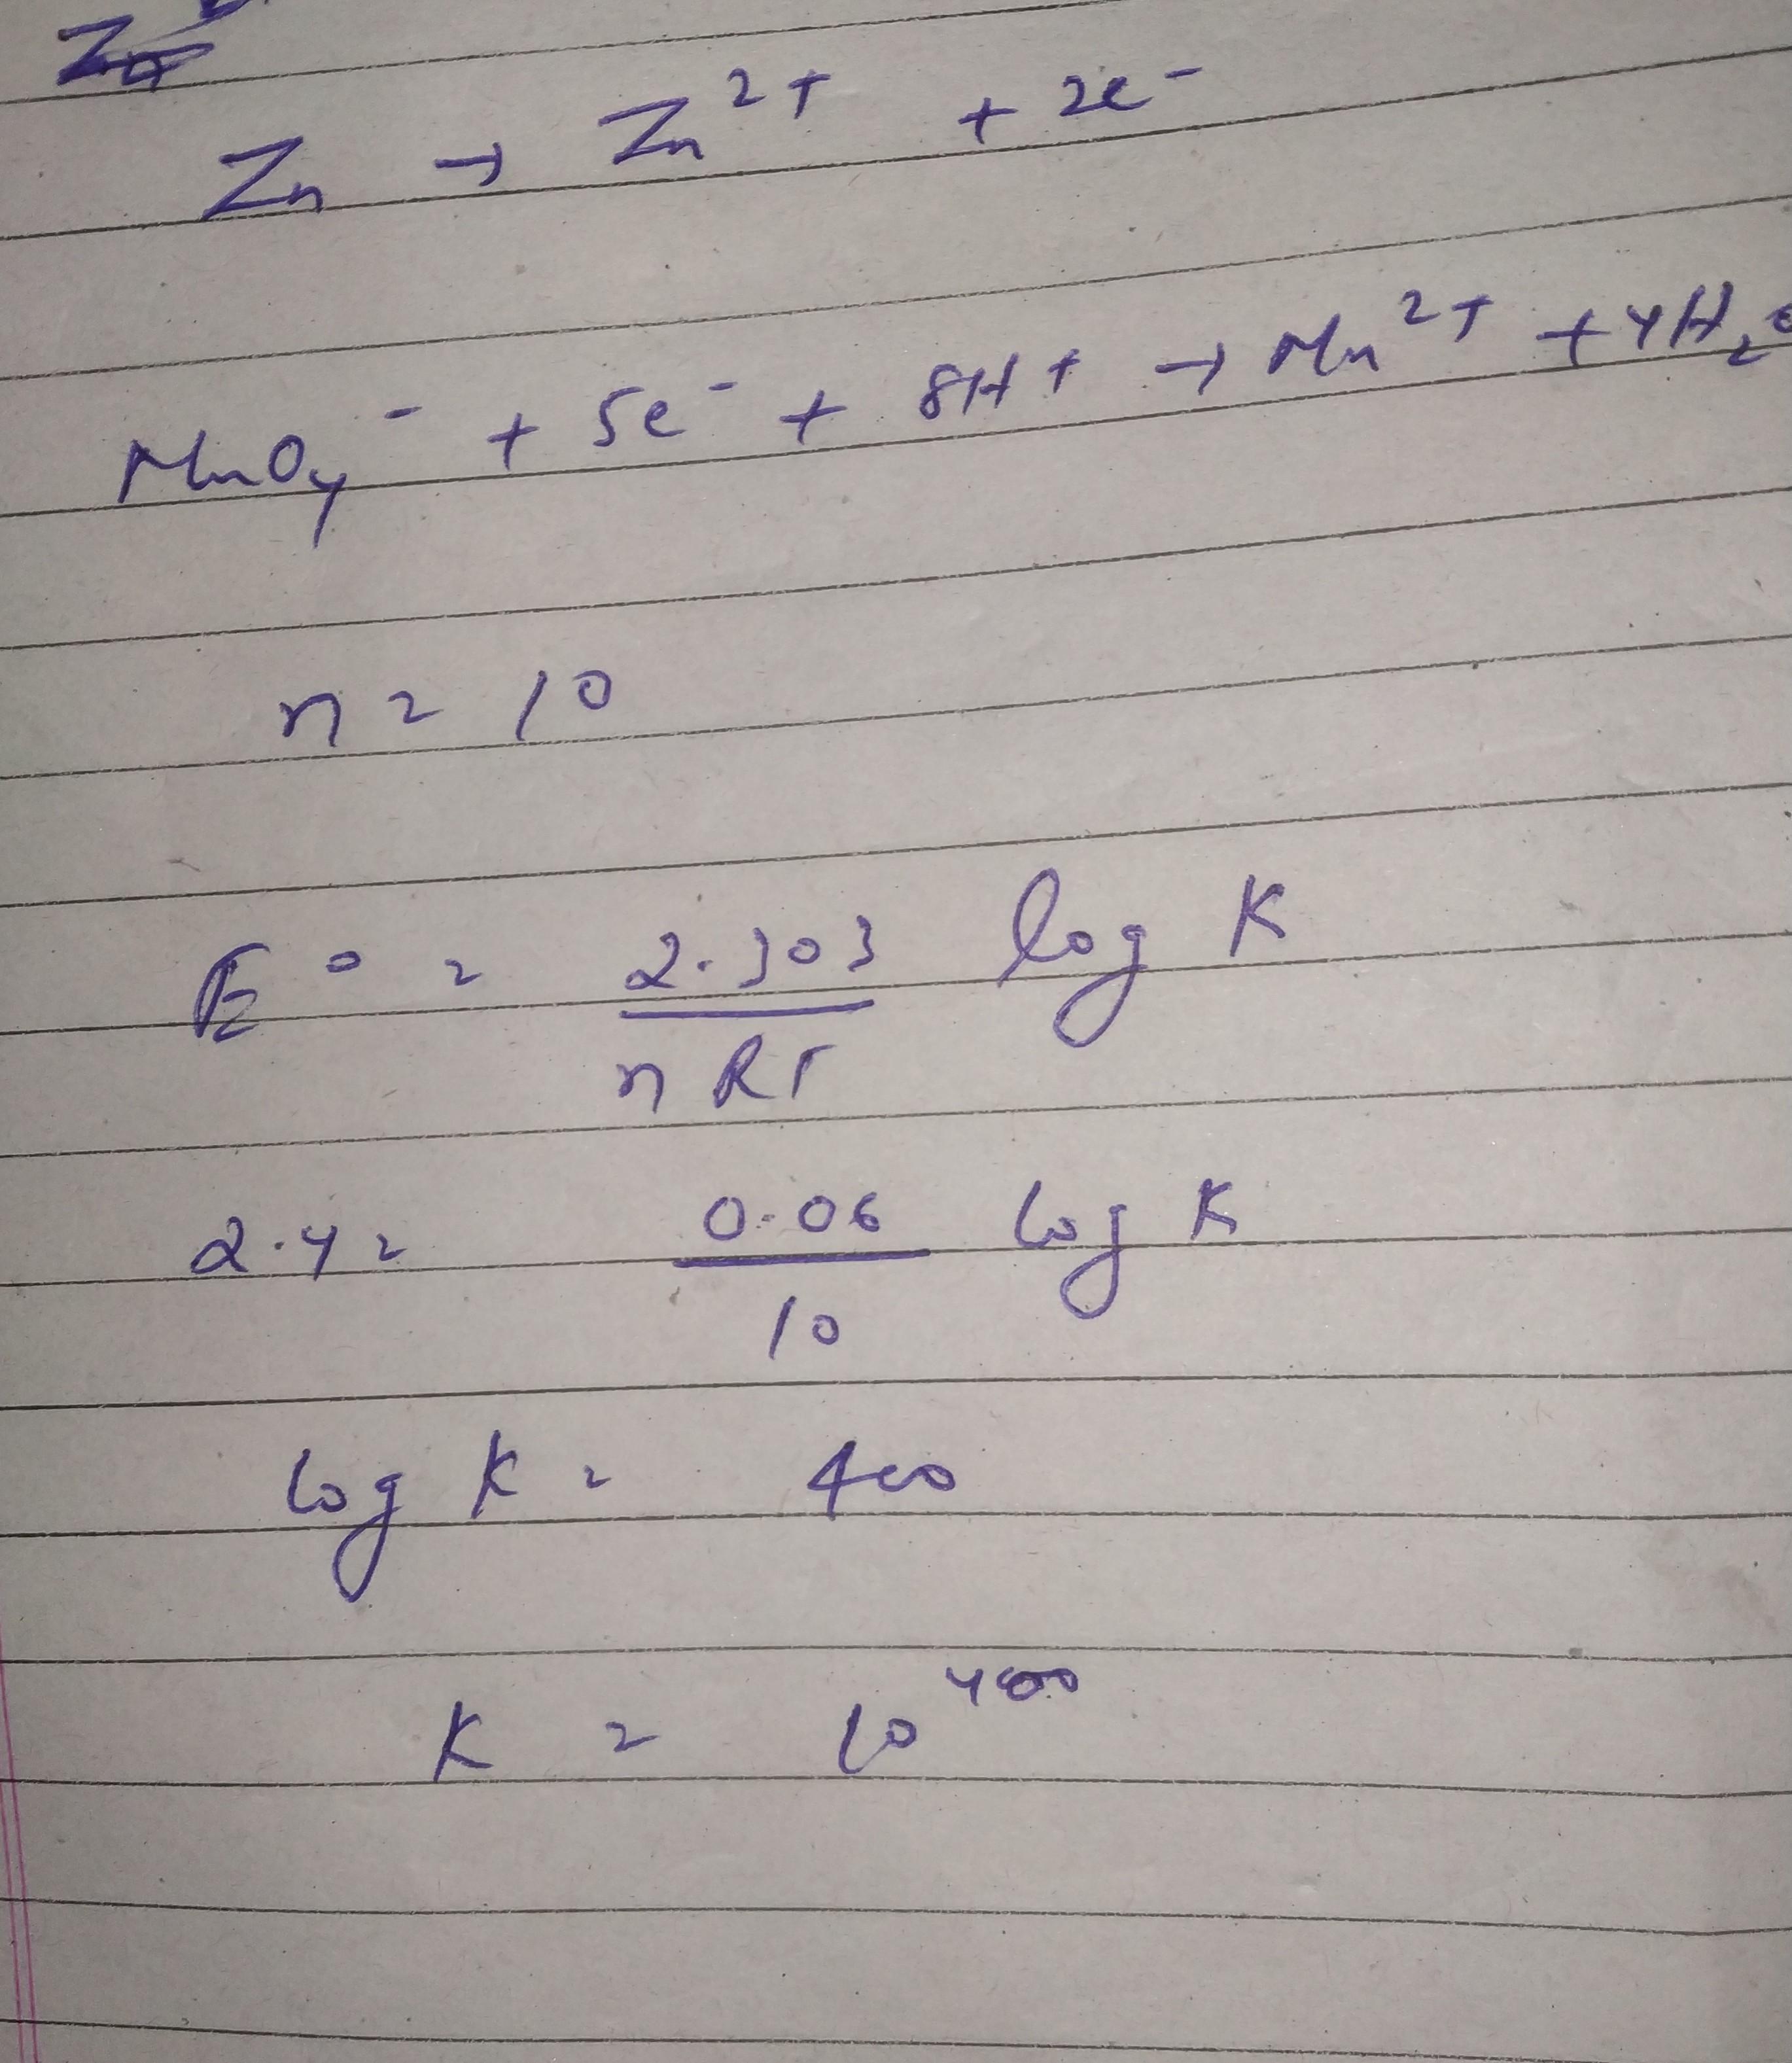 Zn → Zn²⁺ + 2e⁻
MnO₄⁻ + 5e⁻ + 8H⁺ → Mn²⁺ + 4H₂O
n = 10
E° = 2.303 / nRT log K
2.4 = 0.06 / 10 log K
log K = 400
K = 10⁴⁰⁰